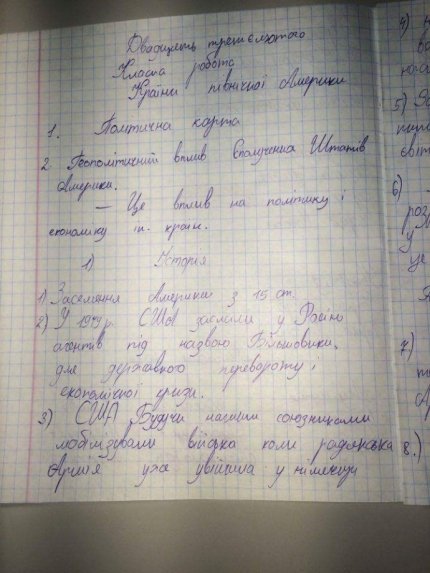 Двадцять третє лютого
Класна робота
Країни північної Америки
1. Політична карта
2. Геополітичний вплив Сполучених Штатів
Америки.
— Це вплив на політику і
економику ін. країн.
1) Історія
1) Заселення Америки з 15 ст.
2) У 19 р. США заслали у Росію
агентів під назвою Більшовики,
для державного перевороту і
економічної кризи.
3) США Будучи нашими союзниками
мобілізували війська коли радянська
Армія уже увійшла у німеччу
4)
5)
6)
у
це
7)
8.)